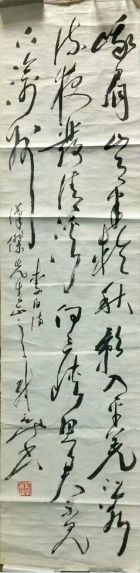 峨眉山月半輪秋影入平羌江水
流夜發清溪向三峽思君不見
下渝州
李白詩
先生正之